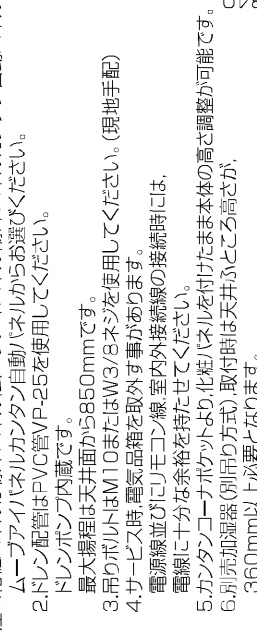 ムーブアイパネルカンタン自動パネルからお選びください。
2.ドレン配管はPVC管VP-25を使用してください。
ドレンポンプ内蔵です。
最大揚程は天井面から850mmです。
3.吊りボルトはM10またはW3/8ネジを使用してください。(現地手配)
4.サービス時,電気品箱を取外す事があります。
電源線並びにリモコン線,室内外接続線の接続時には,
電線に十分な余裕を持たせてください。
5.カンタンコーナポケットより,化粧パネルを付けたまま本体の高さ調整が可能です。
6.別売加湿器(別吊り方式),取付時は天井ふところ高さが,
360mm以上必要となります。